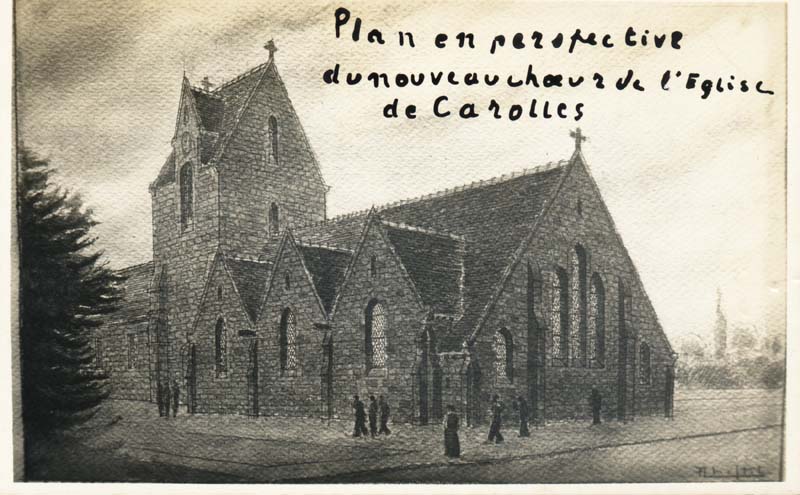 Plan en perspective
du nouveau chœur de l'Eglise
de Carolles